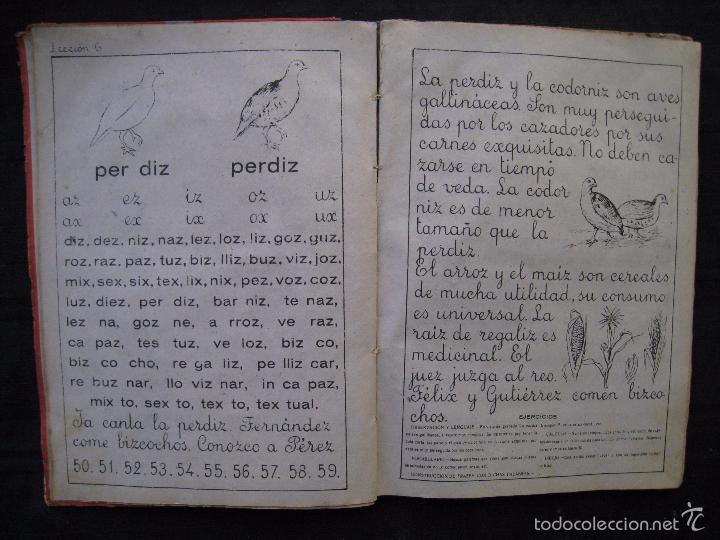 Lección 6
per diz perdiz
az ez iz oz uz
ax ex ix ox ux
diz, dez, niz, naz, lez, loz, liz, goz, guz,
roz, raz, paz, tuz, biz, lliz, buz, viz, joz,
mix, sex, six, tex, lix, nix, pez, voz, coz,
luz, diez, per diz, bar niz, te naz,
lez na, goz ne, a rroz, ve raz,
ca paz, tes tuz, ve loz, biz co,
biz co cho, re ga liz, pe lliz car,
re buz nar, llo viz nar, in ca paz,
mix to, sex to, tex to, tex tual.
Ya canta la perdiz. Fernández
come bizcochos. Conozco a Pérez
50. 51. 52. 53. 54. 55. 56. 57. 58. 59.
La perdiz y la codorniz son aves
gallináceas. Son muy persegui-
das por los cazadores por sus
carnes exquisitas. No deben ca-
zarse en tiempo
de veda. La codor
niz es de menor
tamaño que la
perdiz.
El arroz y el maíz son cereales
de mucha utilidad, su consumo
es universal. La
raíz de regaliz es
medicinal. El
juez juzga al reo.
Félix y Gutiérrez comen bizco-
chos.
EJERCICIOS
OBSERVACION Y LENGUAJE
VOCABULARIO
CONSTRUCCION DE FRASES CON DICHAS PALABRAS
todocoleccion
todocoleccion.net